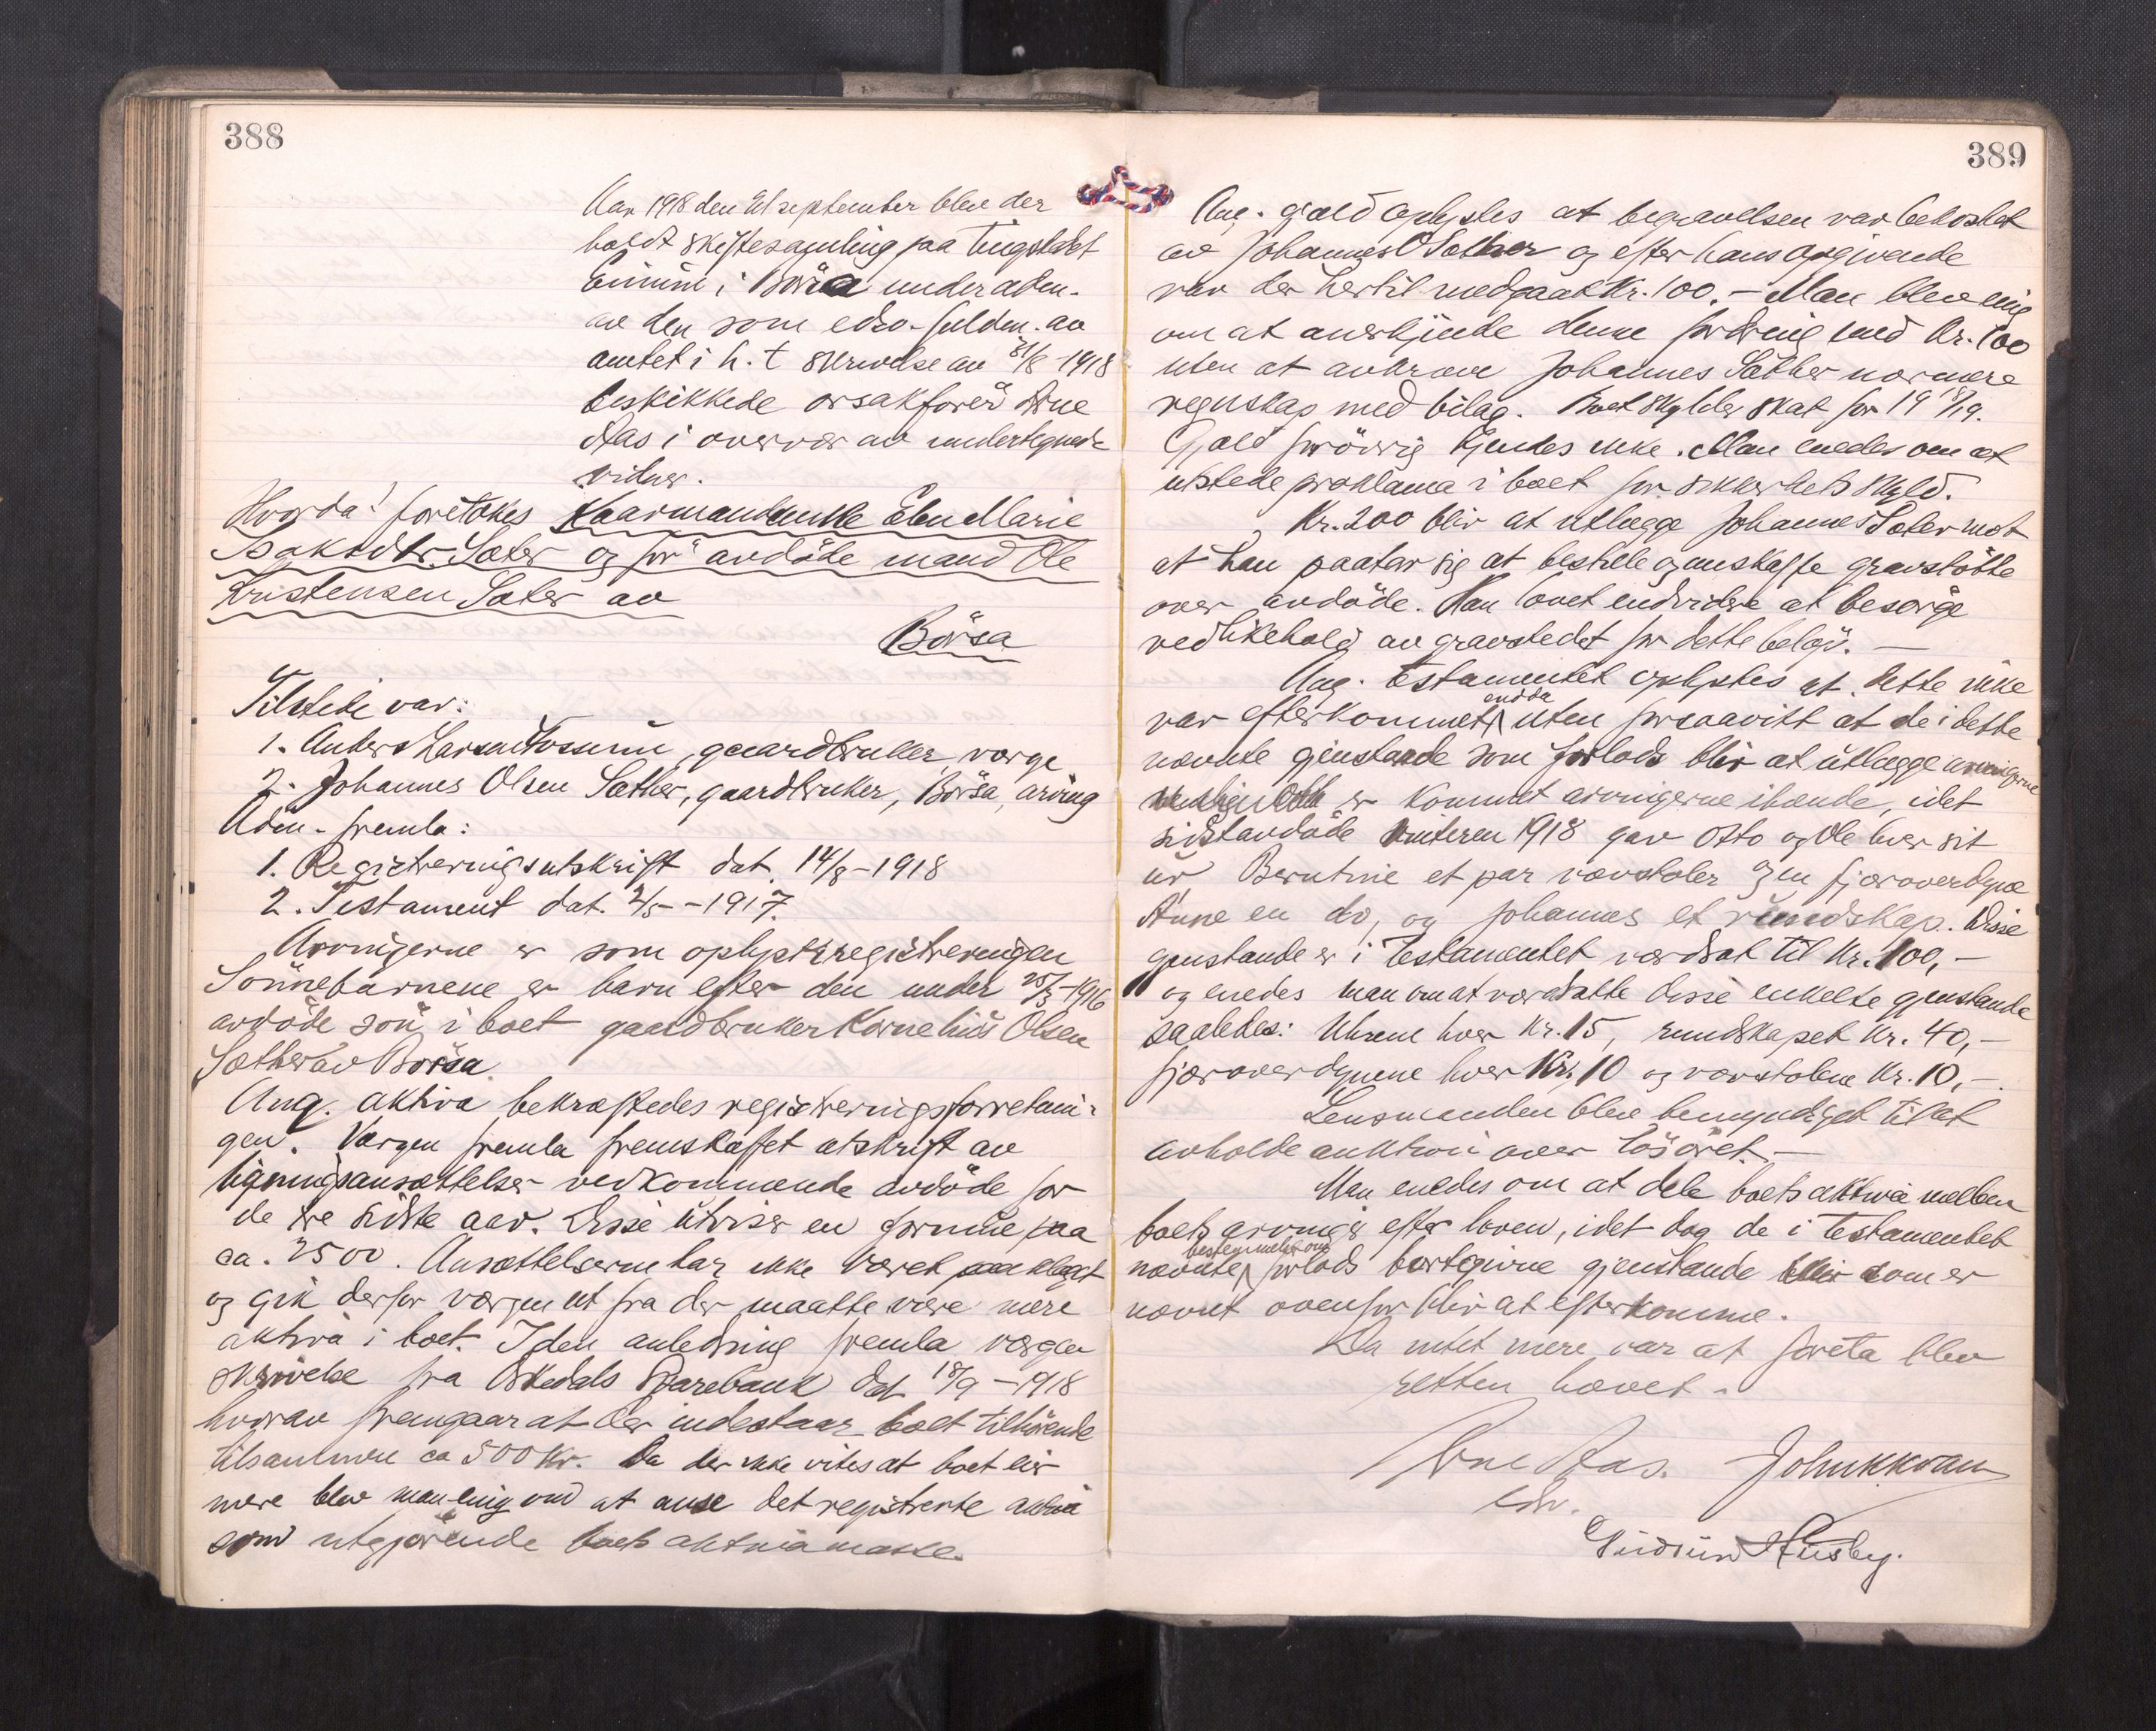 388
Aar 1918 den 21 september blev der
holdt skiftesamling paa tingstedet
Einum i Børsa under adm.
av den som edso.-fuldm. av
amtet i h. t skrivelse av 21/8-1918
beskikkede orsakfører Arne
Aas i overvær av undertegnede
vidner.
Hvorda! foretokes Kaarmandsenke Elen Marie
Isaksdtr. Sæter og før avdøde mand Ole
Kristensen Sæter av
Børsa
Tilstede var:
1. Anders Larsen Fossum, gaardbruker, værge
2. Johannes Olsen Sæther, gaardbruker, Børsa, arving
Adm. fremla:
1. Registreringsutskrift dat. 14/8-1918
2. Testament dat. 2/5-1917.
Arvingerne er som oplyst registreringen
Sønnebarnene er barn efter den under 25/3-1916
avdøde søn i boet gaardbruker Kornelius Olsen
Sæther av Børsa.
Ang. aktiva bekræftedes registreringsforretnin-
gen. Værgen fremla fremskaffet utskrift av
ligningsansættelser vedkommende avdøde for
de tre sidste aar. Disse utviser en formue paa
ca. 2500. Ansættelserne har ikke været paaklaget
og gik derfor værgen ut fra der maatte være mere
aktiva i boet. I den anledning fremla værgen
skrivelse fra Ørkedals Sparebank dat 18/9-1918
hvorav fremgaar at der indestaar boet tilhørende
tilsammen ca 500 kr. Da der ikke vites at boet eier
mere blev man enig om at anse det registrerte aktiva
som utgjørende boets aktivamasse.
389
Ang. gjæld oplystes at begravelsen var bekostet
av Johannes O Sæther og efter hans opgivende
var der hertil medgaat Kr. 100.- Man blev enig
om at anerkjende denne fordring med Kr. 100
uten at avkræve Johannes Sæther nærmere
regnskap med bilag. Boet skylder skat for 1918/19.
Gjæld forøvrig kjendes ikke. Man enedes om at
utstede proklama i boet for sikkerhets skyld.
Kr. 200 blir at utlægge Johannes Sæter mot
at han paatar sig at bestille og anskaffe gravstøtte
over avdøde. Han lovet endvidere at besørge
vedlikehold av gravstedet for dette beløp. -
Ang. testamentet oplystes at dette ikke
var efterkommet endda uten forsaavitt at de i dette
nævnte gjenstande som forlods blir at utlægge arvingerne
er kommet arvingerne ihænde, idet
sidstavdøde vinteren 1918 gav Otto og Ole hver sit
ur, Berntine et par vævstoler og en fjæroverdyne
Anne en do, og Johannes et rundskap. Disse
gjenstande er i testamentet værdsat til Kr. 100,-
og enedes man om at værdsætte disse enkelte gjenstande
saaledes: Uhrene hver Kr. 15, rundskapet Kr. 40,-
fjæroverdynene hver Kr. 10 og vævstolene Kr. 10,-.
Lensmanden blev bemyndiget til at
avholde auktion over løsøret. -
Man enedes om at dele boets aktiva mellem
boets arvinger efter loven, idet dog de i testamentet
nævnte bestemmelser om forlods bortgivne gjenstande som er
nævnt ovenfor blir at efterkomme.
Da intet mere var at foreta blev
retten hævet.
Arne Aas. John K Kvam
edso.
Gudrun Husby.